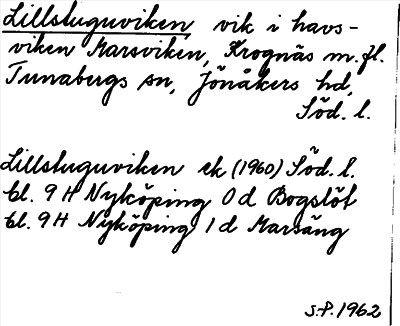 Lillstuguviken, vik i havs-
viken Marsviken, Krognäs m.fl.
Tunabergs sn, Jönåkers hd,
Söd. l.
Lillstuguviken ek (1960) Söd. l.
bl. 9 H Nyköping 0 d Bogslöt
bl. 9 H Nyköping 1 d Marsäng
S.P. 1962